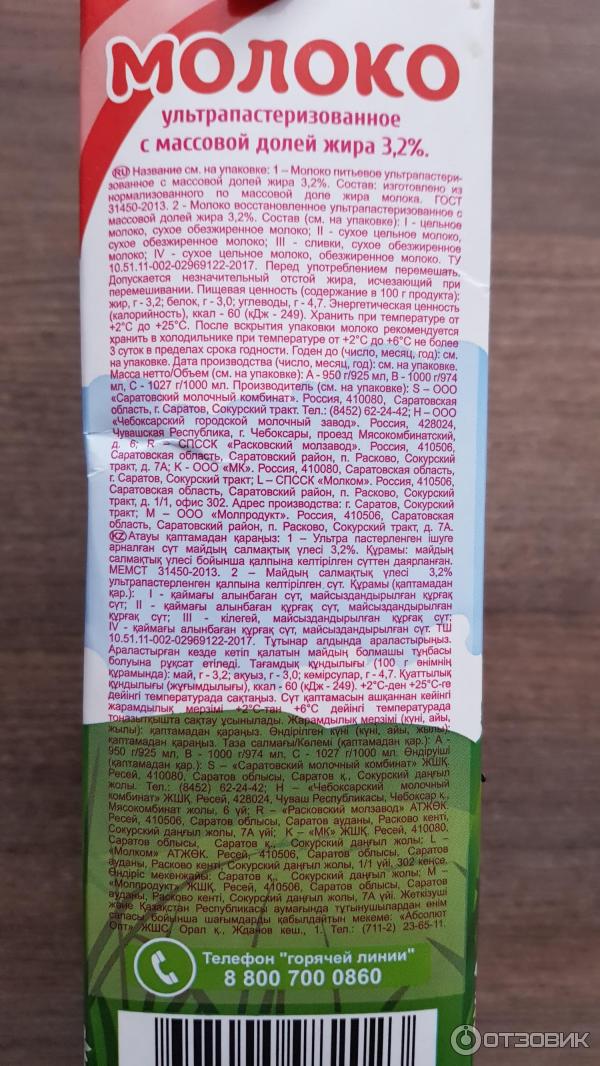 МОЛОКО
ультрапастеризованное
с массовой долей жира 3,2%.
RU Название см. на упаковке: 1 – Молоко питьевое ультрапастери-
зованное с массовой долей жира 3,2%. Состав: изготовлено из
нормализованного по массовой доле жира молока. ГОСТ
31450-2013. 2 - Молоко восстановленное ультрапастеризованное с
массовой долей жира 3,2%. Состав (см. на упаковке): I - цельное
молоко, сухое обезжиренное молоко; II - сухое цельное молоко,
сухое обезжиренное молоко; III - сливки, сухое обезжиренное
молоко; IV - сухое цельное молоко, обезжиренное молоко. ТУ
10.51.11-002-02969122-2017. Перед употреблением перемешать.
Допускается незначительный отстой жира, исчезающий при
перемешивании. Пищевая ценность (содержание в 100 г продукта):
жир, г - 3,2; белок, г - 3,0; углеводы, г - 4,7. Энергетическая ценность
(калорийность), ккал - 60 (кДж - 249). Хранить при температуре от
+2°С до +25°С. После вскрытия упаковки молоко рекомендуется
хранить в холодильнике при температуре от +2°С до +6°С не более
3 суток в пределах срока годности. Годен до (число, месяц, год): см.
на упаковке. Дата производства (число, месяц, год): см. на упаковке.
Масса нетто/Объем (см. на упаковке): А - 950 г/925 мл, В - 1000 г/974
мл, С - 1027 г/1000 мл. Производитель (см. на упаковке): S – ООО
«Саратовский молочный комбинат». Россия, 410080, Саратовская
область, г. Саратов, Сокурский тракт. Тел.: (8452) 62-24-42; Н – ООО
«Чебоксарский городской молочный завод». Россия, 428024,
Чувашская Республика, г. Чебоксары, проезд Мясокомбинатский,
д. 6; R – СПССК «Расковский молзавод». Россия, 410506,
Саратовская область, Саратовский район, п. Расково, Сокурский
тракт, д. 7А; К - ООО «МК». Россия, 410080, Саратовская область,
г. Саратов, Сокурский тракт; L – СПССК «Молком». Россия, 410506,
Саратовская область, Саратовский район, п. Расково, Сокурский
тракт, д. 1/1, офис 302. Адрес производства: г. Саратов, Сокурский
тракт; М – ООО «Молпродукт». Россия, 410506, Саратовская
область, Саратовский район, п. Расково, Сокурский тракт, д. 7А.
KZ Атауы қаптамадан қараңыз: 1 – Ультра пастерленген ішуге
арналған сүт майдың салмақтық үлесі 3,2%. Құрамы: майдың
салмақтық үлесі бойынша қалпына келтірілген сүттен даярланған.
МЕМСТ 31450-2013. 2 – Майдың салмақтық үлесі 3,2%
ультрапастерленген қалпына келтірілген сүт. Құрамы (қаптамадан
қар.): I - қаймағы алынбаған сүт, майсыздандырылған құрғақ
сүт; II - қаймағы алынбаған құрғақ сүт, майсыздандырылған
құрғақ сүт; III - кілегей, майсыздандырылған құрғақ сүт;
IV - қаймағы алынбаған құрғақ сүт, майсыздандырылған сүт. ТШ
10.51.11-002-02969122-2017. Тұтынар алдында араластырыңыз.
Араластырған кезде кетіп қалатын майдың болмашы тұнбасы
болуына рұқсат етіледі. Тағамдық құндылығы (100 г өнімнің
құрамында): май, г - 3,2; ақуыз, г - 3,0; көмірсулар, г - 4,7. Қуаттылық
құндылығы (жұғымдылығы), ккал - 60 (кДж - 249). +2°С-ден +25°С-ге
дейінгі температурада сақтаңыз. Сүт қаптамасын ашқаннан кейінгі
жарамдылық мерзімі +2°С-тан +6°С дейінгі температурада
тоңазытқышта сақтау ұсынылады. Жарамдылық мерзімі (күні, айы,
жылы): қаптамадан қараңыз. Өндірілген күні (күні, айы, жылы):
қаптамадан қараңыз. Таза салмағы/Көлемі (қаптамадан қар.): А -
950 г/925 мл, В - 1000 г/974 мл, С - 1027 г/1000 мл. Өндіруші
(қаптамадан қар.): S – «Саратовский молочный комбинат» ЖШҚ,
Ресей, 410080, Саратов облысы, Саратов қ., Сокурский даңғыл
жолы. Тел.: (8452) 62-24-42; Н – «Чебоксарский молочный
комбинат» ЖШҚ, Ресей, 428024, Чуваш Республикасы, Чебоксар қ.,
Мясокомбинат жолы, 6 үй; R – «Расковский молзавод» АТЖӨК.
Ресей, 410506, Саратов облысы, Саратов ауданы, Расково кенті,
Сокурский даңғыл жолы, 7А үйі; К – «МК» ЖШҚ, Ресей, 410080,
Саратов облысы, Саратов қ., Сокурский даңғыл жолы; L –
«Молком» АТЖӨК. Ресей, 410506, Саратов облысы, Саратов
ауданы, Расково кенті, Сокурский даңғыл жолы, 1/1 үйі, 302 кеңсе.
Өндіріс мекенжайы: Саратов қ., Сокурский даңғыл жолы; М –
«Молпродукт» ЖШҚ, Ресей, 410506, Саратов облысы, Саратов
ауданы, Расково кенті, Сокурский даңғыл жолы, 7А үйі. Жеткізуші
және Қазақстан Республикасы аумағында тұтынушылардан өнім
сапасы бойынша шағымдарды қабылдайтын мекеме: «Абсолют
Опт» ЖШС, Орал қ., Жданов көш., 1. Тел.: (711-2) 23-65-11.
Телефон "горячей линии"
8 800 700 0860
ОТЗОВИК